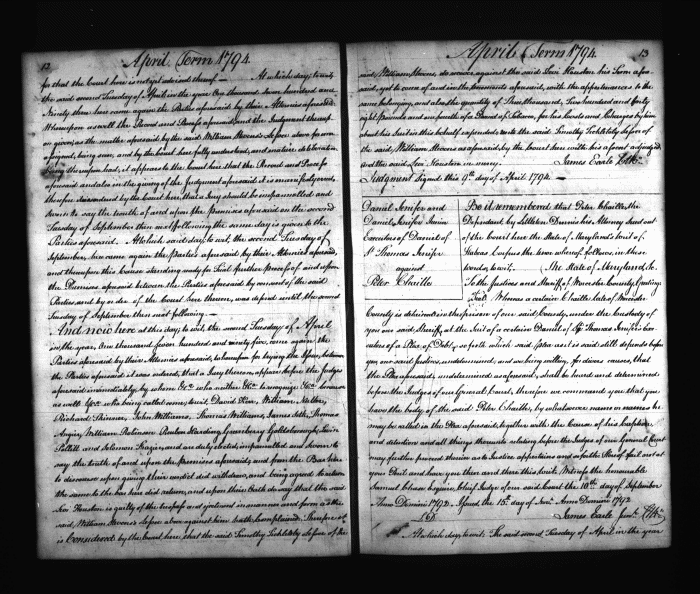 12
April Term 1794.
for that the Court here is not yet advised thereof — At which day, to wit,
the said second Tuesday of April in the year One thousand seven hundred and
Ninety three here came again the Parties aforesaid by their Attornies aforesaid
Whereupon as well the Record and Process aforesaid and the Judgment thereup
on given, as the matter aforesaid by the said William Moore
being seen, and by the Court here fully understood, and mature deliberation
being thereupon had, it appears to the Court here that the Record and Process
aforesaid
therefore it is ordered by the Court here, that a Jury should be impannelled and
sworn to say the truth of and upon the premises aforesaid on the second
Tuesday of September then next following the same day is given to the
Parties aforesaid. At which said day, to wit, the second Tuesday of
September, here came again the Parties aforesaid by their Attornies aforesaid,
and thereupon this Cause standing ready for Trial further Process of and upon
the Premises aforesaid between the Parties aforesaid by consent of the said
Parties, and by order of the Court here thereon, was until the second
Tuesday of September then next following —
And now here at this day, to wit, the second Tuesday of April
in the year, One thousand seven hundred and ninety five, came again the
Parties aforesaid by their Attornies aforesaid,
the Parties aforesaid it was ordered, that a Jury thereon, appear before the Judges
aforesaid immediately, by whom &ca. who neither &ca. to recognize &ca. because
as well &ca. who being called come, to wit, David Kerr, William
Richard Skinner, John Williams, Thomas Williams, James Seth, Thomas
William Robinson Harding Greenberry Goldsborough,
and Solomon Frazier, and are duly elected, impannelled and sworn to
say the truth of and upon the premises aforesaid, and from the Bar here
to discourse upon giving their verdict did withdraw, and being agreed to return
the same to the bar here did return, and upon their Oath do say that the said
Levi Houston is guilty of the trespass and ejectment in manner and form as the
said, William Moore before above against him hath complained. Therefore it
is Considered by the Court here, that the said Timothy Lessee of the
April Term 1794.
13
said William Moore, do recover against the said Levi Houston his Term afore
said, yet to come of and in the tenements aforesaid, with the appurtenances to the
same belonging, and also the quantity of Three thousand, Two hundred and forty
eight Pounds and one fourth of a Pound of Tobacco, for his Costs and Charges by him
about his Suit in this behalf expended, unto the said Timothy Lessee of the
said, William Moore as aforesaid, by the Court here with his assent adjudged
and the said Levi Houston in mercy. James Earle Clk.
Judgment Signed this 9th. day of April 1794 —
Daniel Jenifer and
Daniel Jenifer Junior
Executors of Daniel of
St. Thomas Jenifer
against
Peter Chaille
Be it remembered that Peter Chaille the
Defendant by Littleton Dennis his Attorney sued out
of the Court here the State of Maryland's writ of
Habeas Corpus the tenor whereof follows, in these
words, to wit. The State of Maryland Sc.
To the Justices and Sheriff of Worcester County, Greeting.
Whereas a certain Peter Chaille late of Worcester
County is detained in the prison of our said County, under the Custody of
you our said Sheriff, at the Suit of a certain Daniel of St. Thomas Jenifer in a
of a Plea of Debt, so forth which said Plea as it is said still depends before
you our said Justices, undetermined, and we being willing for divers causes, that
the Plea aforesaid, undetermined as aforesaid, shall be heard and determined
before the Judges of our General Court, therefore we command you that you
have the body of the said Peter Chaille, by whatsoever name or names he
may be called in the Plea aforesaid, together with the Cause of his Caption
and detention and all things thereunto relating before the Judges of our General Court
may further proceed therein as to Justice appertains and of the Plea fail not at
your Peril and have you then and there this Writ. Witness the honourable
Samuel Chase Esquire Chief Judge of our said Court the 18th. day of September
Anno Domini 1792. Issued the 15th. day of Novr. Anno Domini 1792
James Earle Junr. Clk.
At which day, to wit: The said second Tuesday of April in the year